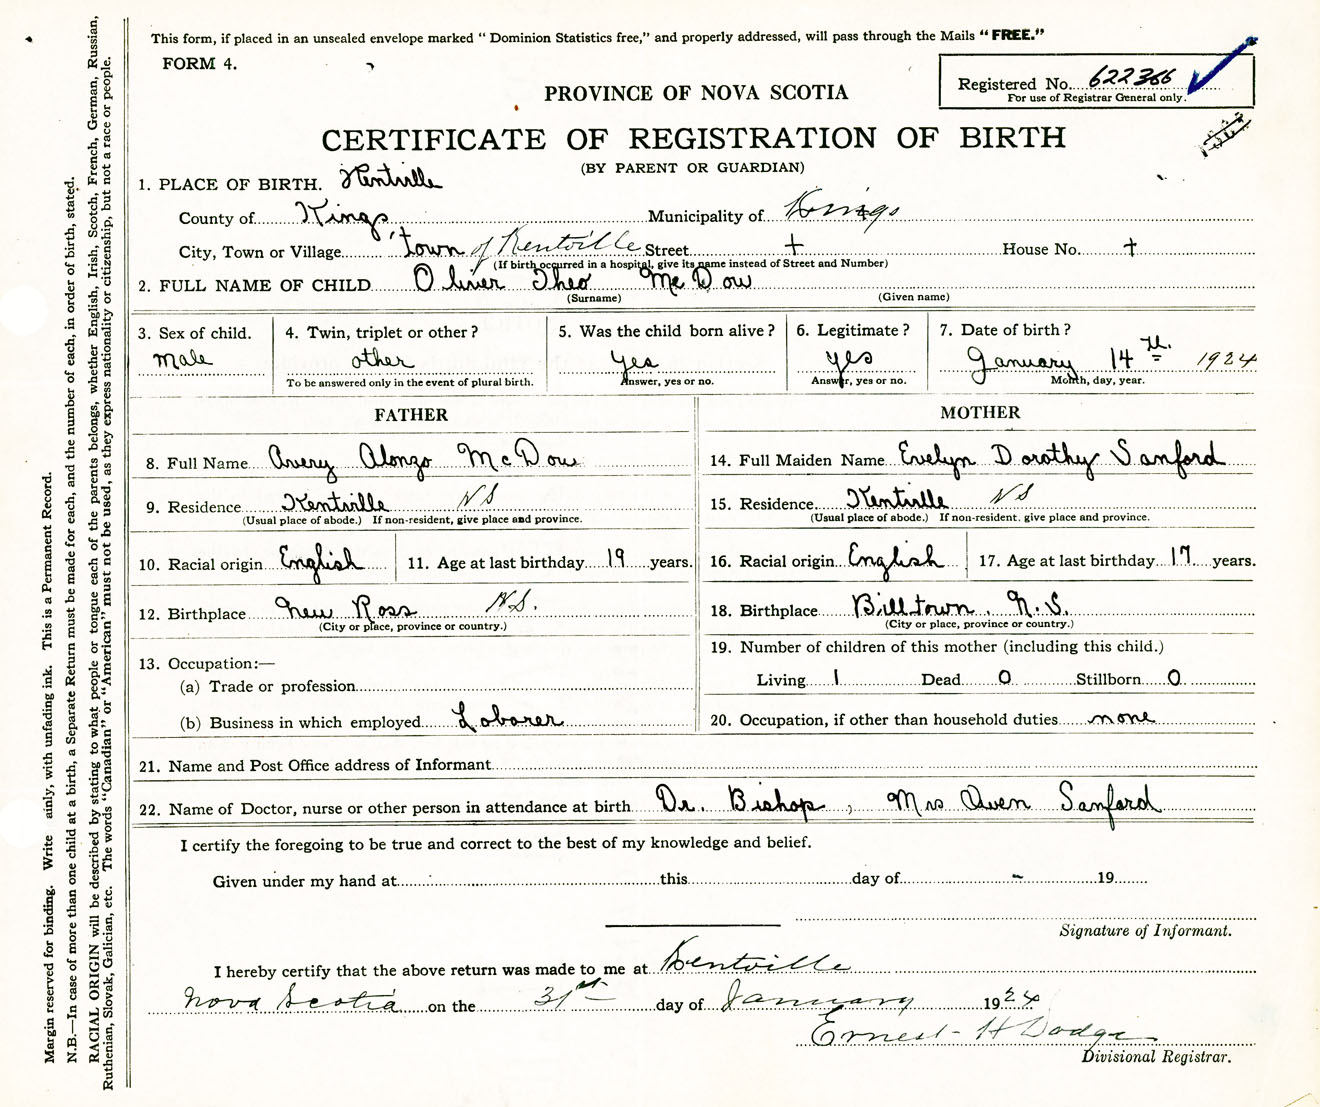 This form, if placed in an unsealed envelope marked “ Dominion Statistics free,” and properly addressed, will pass through the Mails “ FREE.”
FORM 4.
Registered No. 622366
For use of Registrar General only.
PROVINCE OF NOVA SCOTIA
CERTIFICATE OF REGISTRATION OF BIRTH
(BY PARENT OR GUARDIAN)
1. PLACE OF BIRTH. Kentville
County of Kings Municipality of Kings
City, Town or Village town of Kentville Street + House No. +
(If birth occurred in a hospital, give its name instead of Street and Number)
2. FULL NAME OF CHILD Oliver Theo McDow
(Surname) (Given name)
3. Sex of child. 4. Twin, triplet or other? 5. Was the child born alive? 6. Legitimate? 7. Date of birth?
male other yes yes January 14th. 1924
To be answered only in the event of plural birth. Answer, yes or no. Answer, yes or no. Month, day, year.
FATHER
8. Full Name Avery Alonzo McDow
9. Residence Kentville NS
(Usual place of abode.) If non-resident, give place and province.
10. Racial origin English 11. Age at last birthday 19 years.
12. Birthplace New Ross N.S.
(City or place, province or country.)
13. Occupation:—
(a) Trade or profession
(b) Business in which employed Laborer
MOTHER
14. Full Maiden Name Evelyn Dorothy Sanford
15. Residence Kentville NS
(Usual place of abode.) If non-resident. give place and province.
16. Racial origin English 17. Age at last birthday 17 years.
18. Birthplace Billtown. N.S.
(City or place, province or country.)
19. Number of children of this mother (including this child.)
Living 1 Dead 0 Stillborn 0
20. Occupation, if other than household duties none
21. Name and Post Office address of Informant
22. Name of Doctor, nurse or other person in attendance at birth Dr. Bishop, Mrs Owen Sanford
I certify the foregoing to be true and correct to the best of my knowledge and belief.
Given under my hand at this day of 19
Signature of Informant.
I hereby certify that the above return was made to me at Kentville
Nova Scotia on the 31st day of January 1924
Ernest H Dodge
Divisional Registrar.
Margin reserved for binding. Write ainly, with unfading ink. This is a Permanent Record.
N.B.—In case of more than one child at a birth, a Separate Return must be made for each, and the number of each, in order of birth, stated.
RACIAL ORIGIN will be described by stating to what people or tongue each of the parents belongs, whether English, Irish, Scotch, French, German, Russian,
Ruthenian, Slovak, Galician, etc. The words “Canadian” or “American” must not be used, as they express nationality or citizenship, but not a race or people.